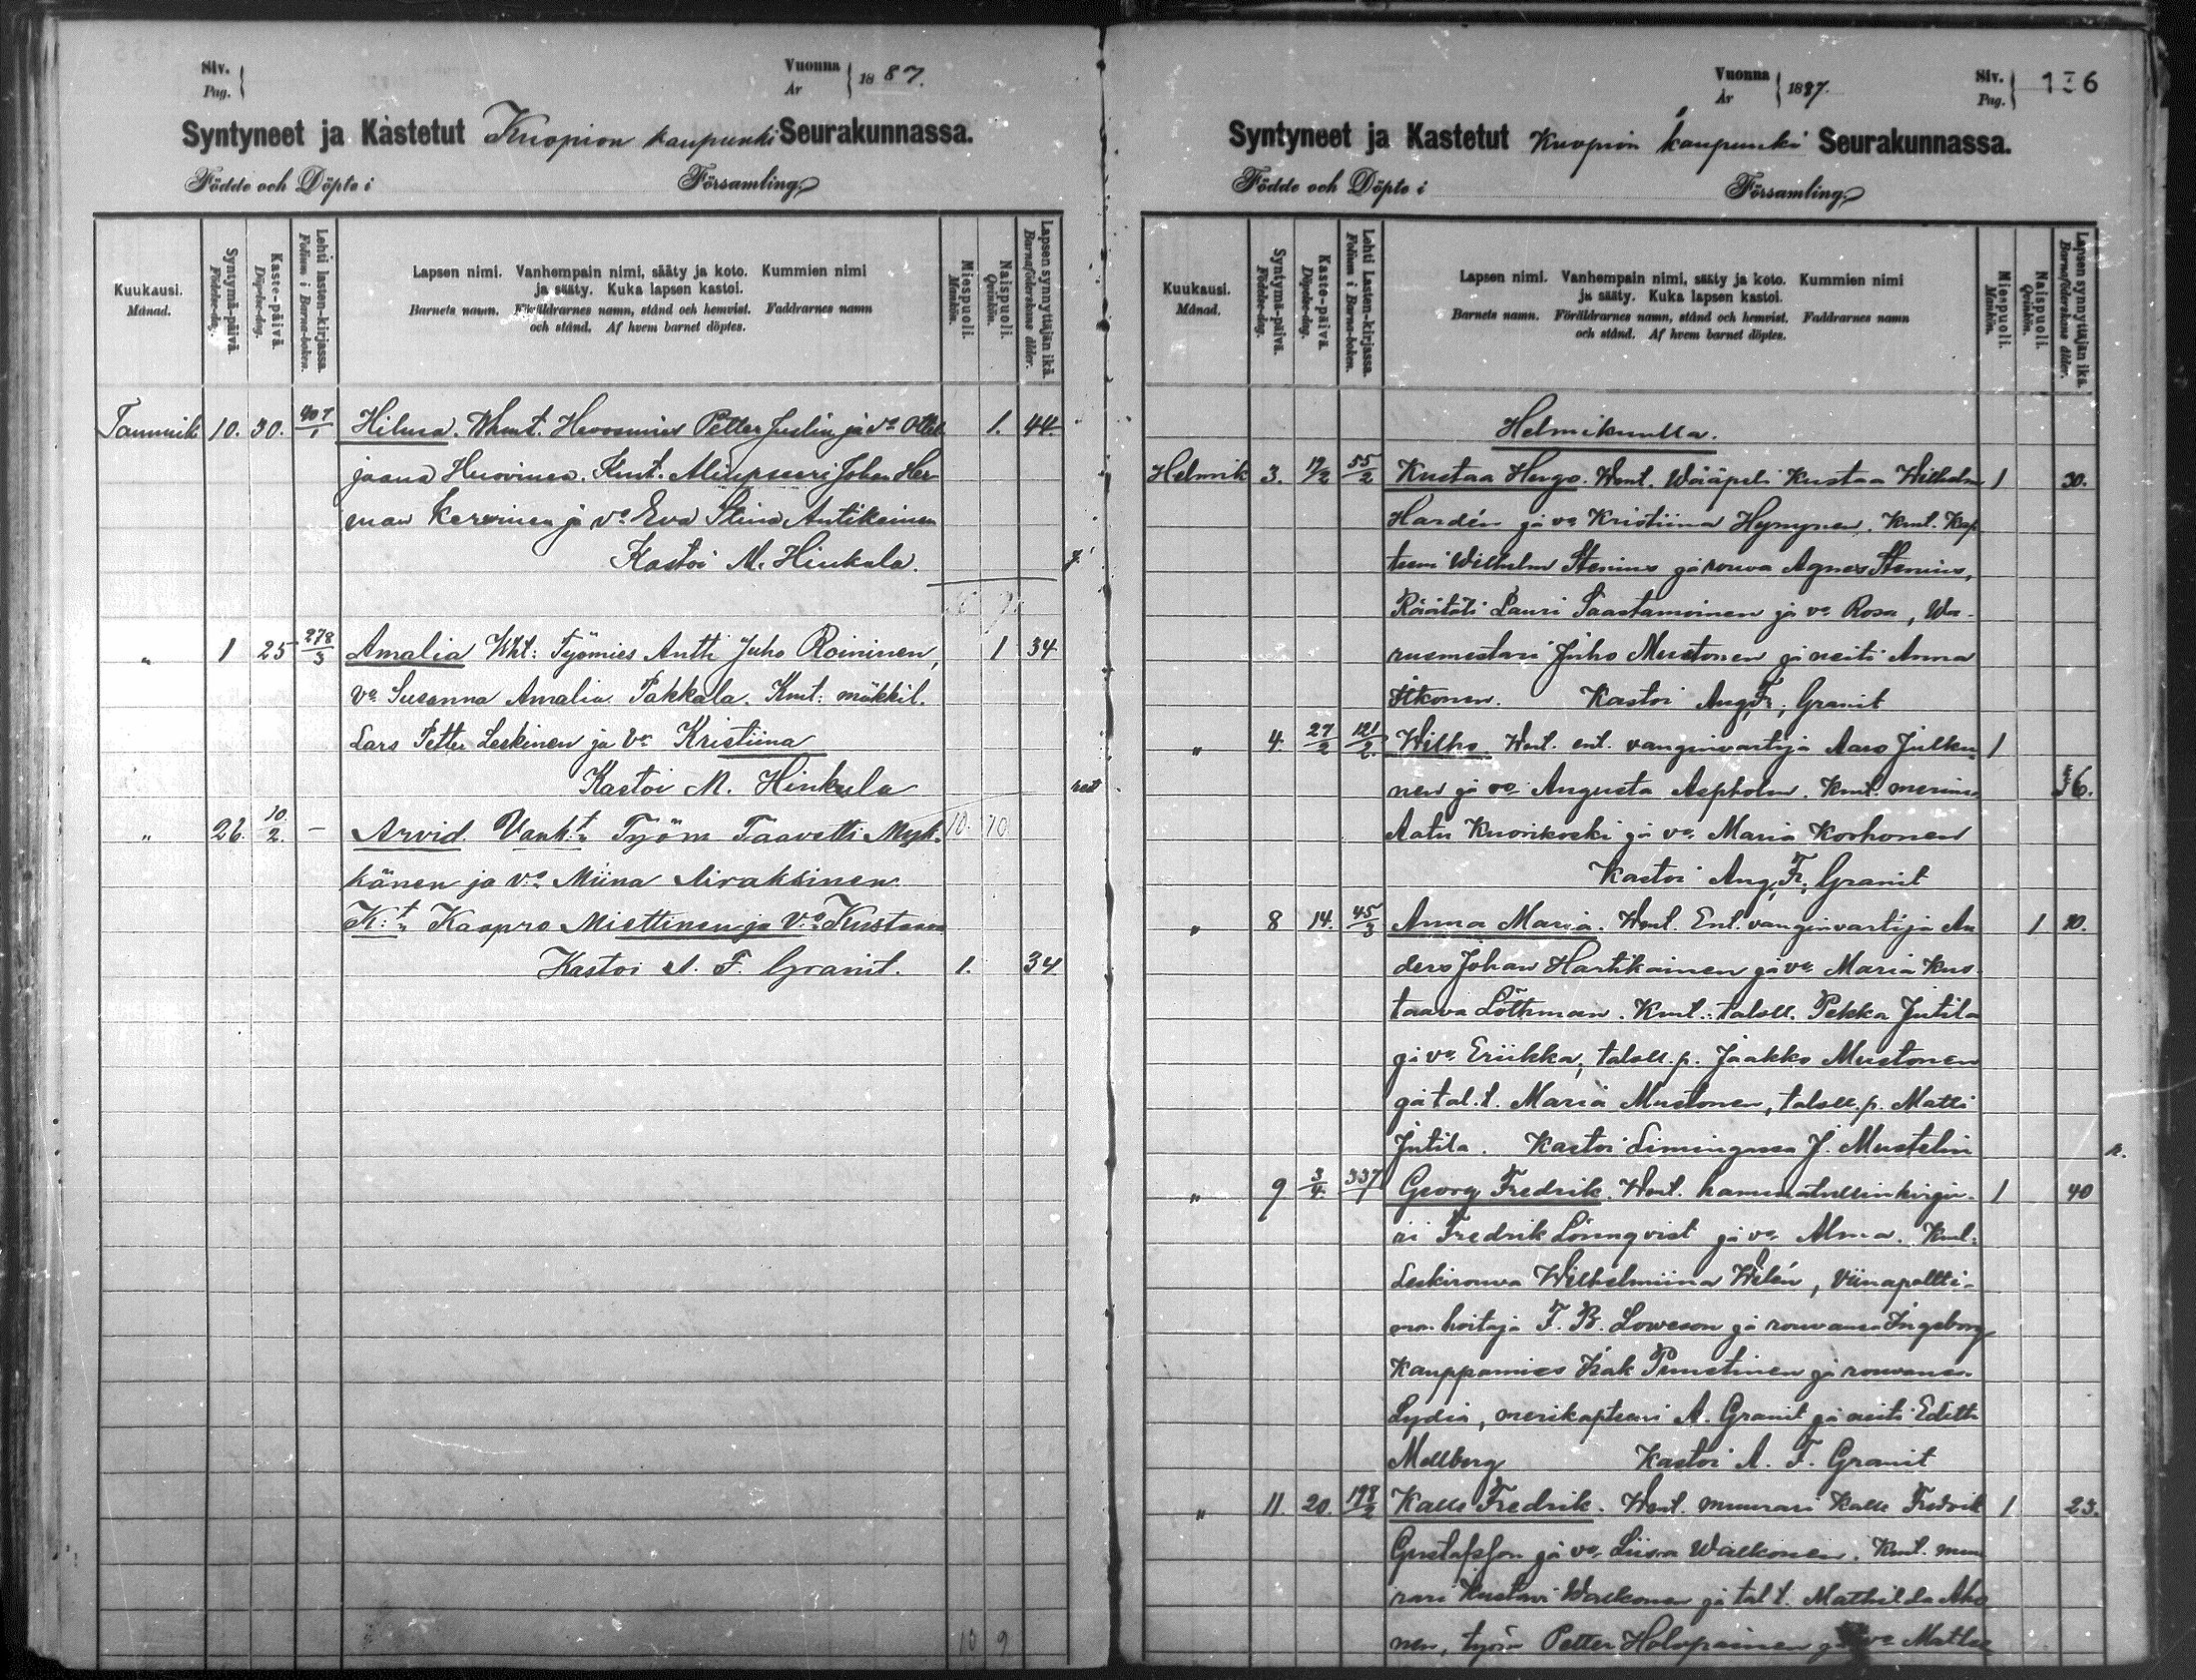 Siv.
Pag.
Vuonna
År
1887.
Syntyneet ja Kastetut Kuopion kaupunki Seurakunnassa.
Födde och Döpte i Församling.
Kuukausi.
Månad.
Syntymä-päivä.
Födelse-dag.
Kaste-päivä.
Döpelse-dag.
Lehti lasten-kirjassa.
Folium i Barna-boken.
Lapsen nimi. Vanhempain nimi, sääty ja koto. Kummien nimi
ja sääty. Kuka lapsen kastoi.
Barnets namn. Föräldrarnes namn, stånd och hemvist. Faddrarnes namn
och stånd. Af hvem barnet döptes.
Miespuoli.
Mankön.
Naispuoli.
Qvinkön.
Lapsen synnyttäjän ikä.
Barnaföderskans ålder.
Tammik 10. 30. 407/1 Hilma. Whmt. Hevosmies Petter Juslin ja vo 1. 44.
jaana Huovinen. Kmt. Aliupseeri Johan Her
man Kervinen ja vo Eva Stina Antikainen
Kastoi M. Hinkula.
" 1 25 278/3 Amalia Wht: Työmies Antti Juho Roininen, 1 34
vo Susanna Amalia Pakkala. Kmt: mökkil.
Lars Petter Leskinen ja vo Kristiina
Kastoi M. Hinkula
" 26. 10/2. – Arvid. Vanh:t Työm Taavetti Myk- 10. 10
känen ja vo Miina Airaksinen.
K:t Kaapro Miettinen ja Vo Kustaava
Kastoi A. F. Granit. 1. 34
10 9
Vuonna
År
1887.
Siv.
Pag.
Syntyneet ja Kastetut Kuopion kaupunki Seurakunnassa.
Födde och Döpte i Församling.
Kuukausi.
Månad.
Syntymä-päivä.
Födelse-dag.
Kaste-päivä.
Döpelse-dag.
Lehti Lasten-kirjassa.
Folium i Barna-boken.
Lapsen nimi. Vanhempain nimi, sääty ja koto. Kummien nimi
ja sääty. Kuka lapsen kastoi.
Barnets namn. Föräldrarnes namn, stånd och hemvist. Faddrarnes namn
och stånd. Af hvem barnet döptes.
Miespuoli.
Mankön.
Naispuoli.
Qvinkön.
Lapsen synnyttäjän ikä.
Barnaföderskans ålder.
Helmikuulla.
Helmik 3. 55/2 Kustaa Hugo. Wmt. Wääpeli Kustaa Wilhelm 1 30.
Hardén ja vo Kristiina Hynynen. Kmt. Kap
teeni Wilhelm Stenius ja rouva Agnes Stenius,
Räätäli Lauri Saastamoinen ja vo Rosa, Wa-
rusmestari Juho Mustonen ja neiti Anna
Itkonen. Kastoi Aug. Fr. Granit
" 4. 27/2 121/2. Wilho. Wmt. ent. vanginvartija Aaro Julku- 1
nen ja vo Augusta Aspholm. Kmt. merim. 36.
Aatu Kuorikoski ja vo Maria Korhonen
Kastoi Aug. Fr. Granit
" 8 14. 45/3 Anna Maria. Wmt. Ent. vanginvartija An 1
ders Johan Hartikainen ja vo Maria Kus-
taava Löthman. Kmt.: taloll. Pekka Jutila
ja vo Eriikka, taloll. p. Jaakko Mustonen
ja tal. t. Maria Mustonen, taloll. p. Matti
Jutila. Kastoi Limingassa J. Mustelin
" 9 3/4. 337/1 Georg Fredrik. Wmt. kamaritullinkirju- 1 40
ri Fredrik Lönnqvist ja vo Alma. Kmt:
Leskirouva Wilhelmiina Wilén, Viinapoltti-
mon hoitaja F. B. Loweson ja rouvansa Ingeborg
Kauppamies Isak Permstinen ja rouvansa
Lydia, merikapteeni A. Granit ja neiti Edith
Mellberg Kastoi A. F. Granit
" 11. 20. 198/2 Kalle Fredrik. Wmt. muurari Kalle Fredrik 1 23.
Gustafsson ja vo Liisa Walkonen. Kmt. muu
rari Kustavi Walkonen ja tal t. Mathilda Aho
nen, työm Petter Holopainen ja vo